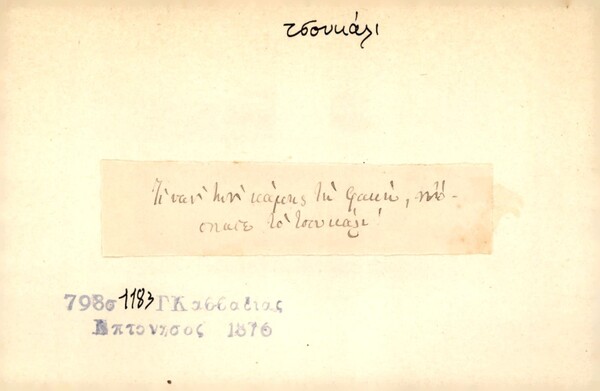 τσουκάλι
Τί ναν' τὴν κάμῃς τὴ φακῆ, πὤ-
σπασε τὸ τσουκάλι!
798σ 1183 ΓΚαββαδίας
Επτάνησος 1876